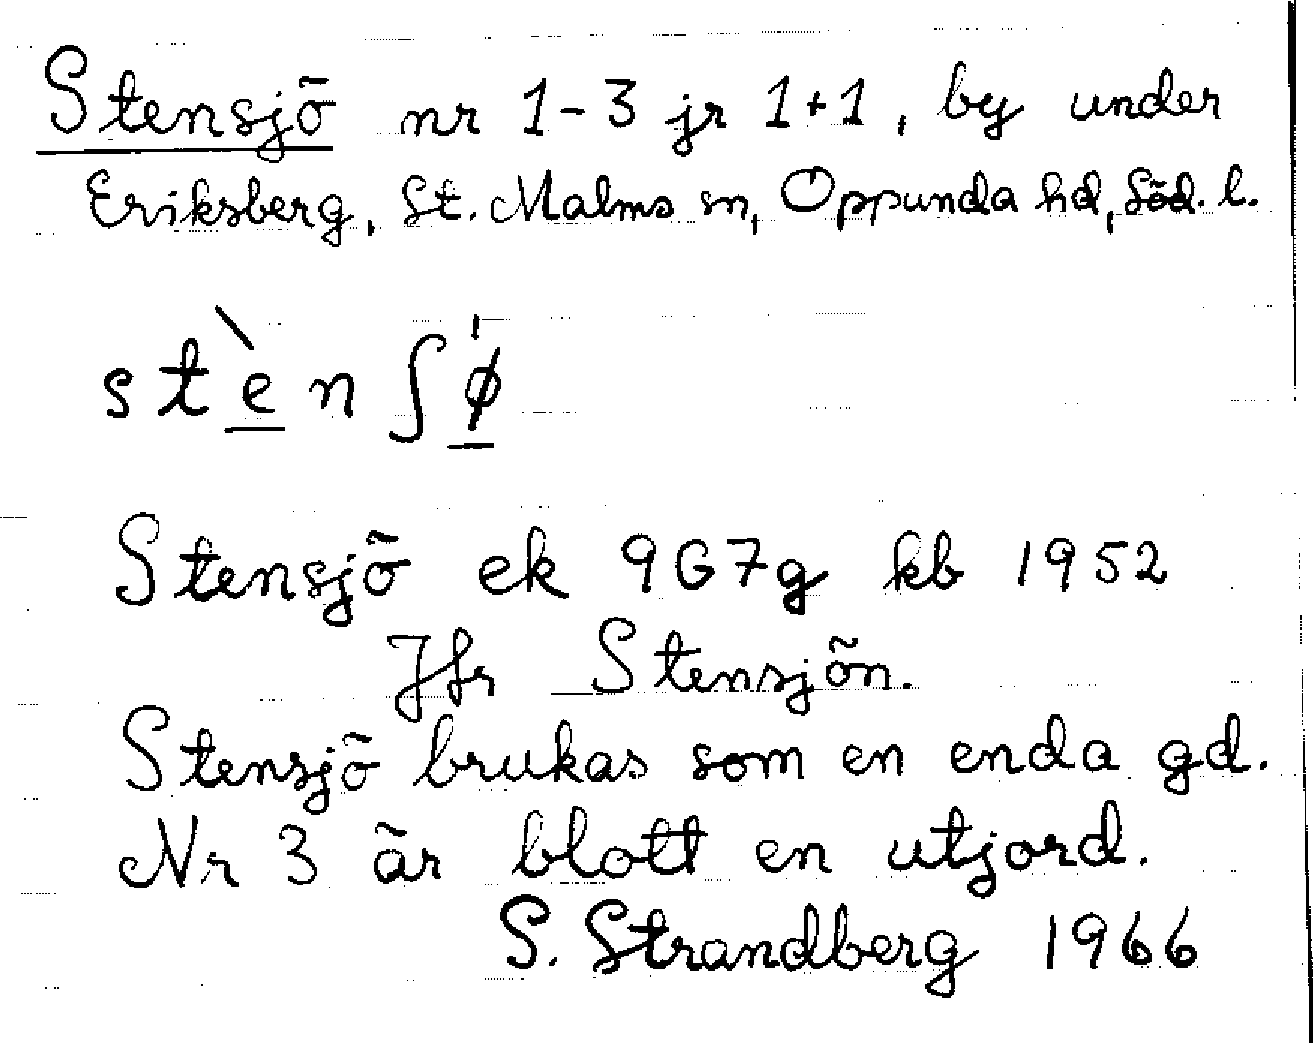 Stensjö nr 1-3 jr 1+1, by under
Eriksberg, St. Malms sn, Oppunda hd, Söd. l.
stèn ʃø̍
Stensjö ek 9G7g kb 1952
Jfr Stensjön.
Stensjö brukas som en enda gd.
Nr 3 är blott en utjord.
S. Strandberg 1966